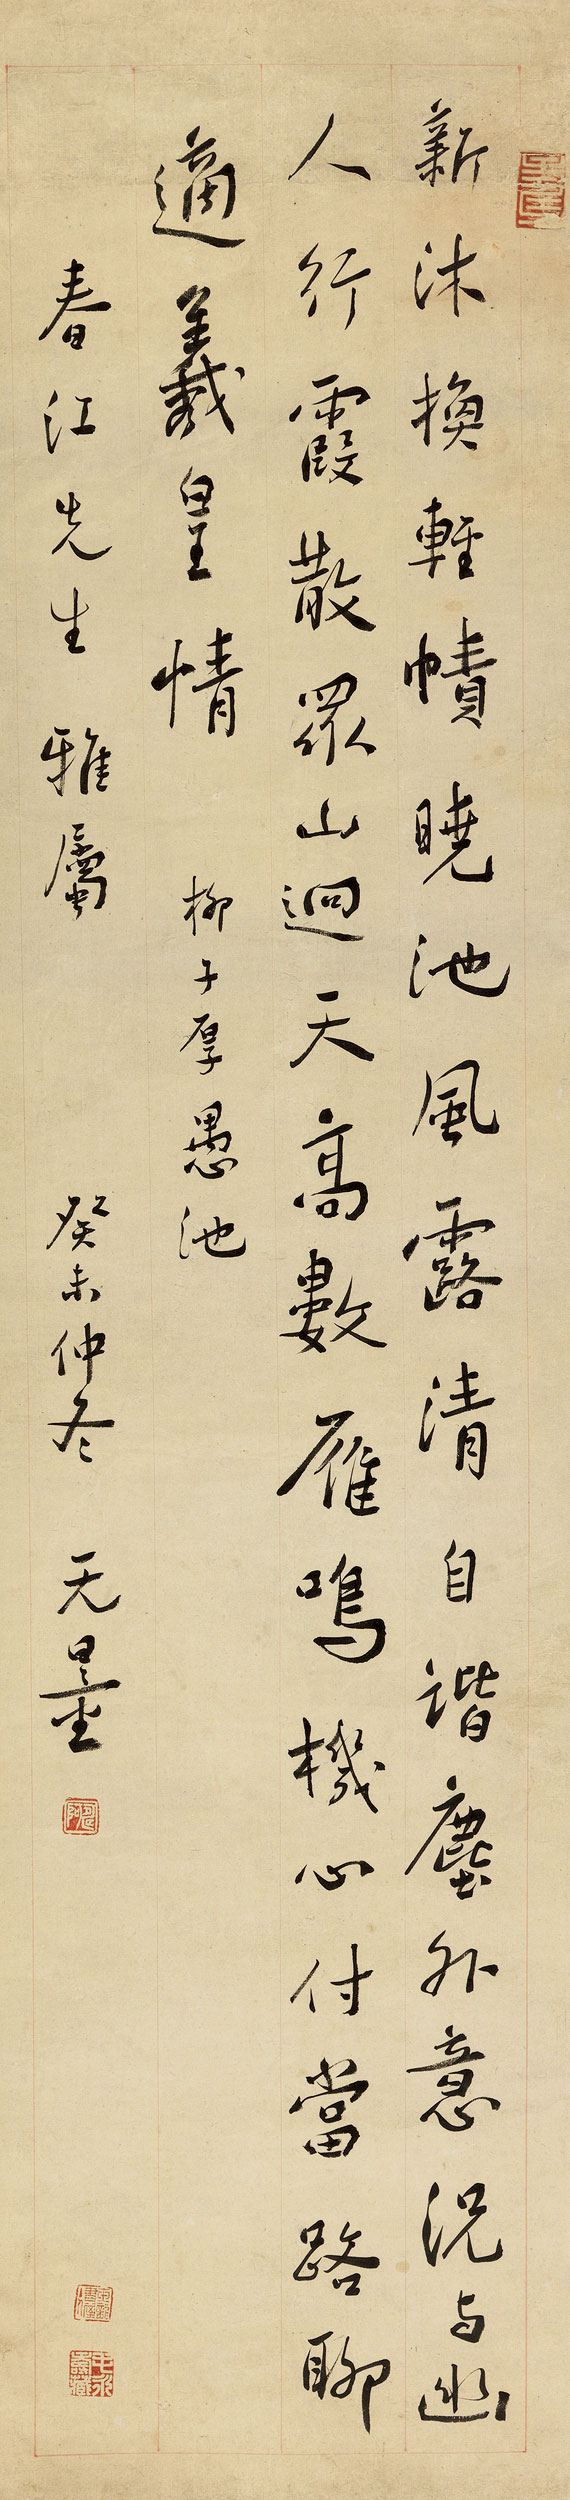 新沐換輕幘曉池風露清自諧塵外意況与幽
人行霞散眾山迥天高數雁鳴機心付當路聊
適羲皇情
柳子厚愚池
春江先生 雅屬
癸未仲冬 无量